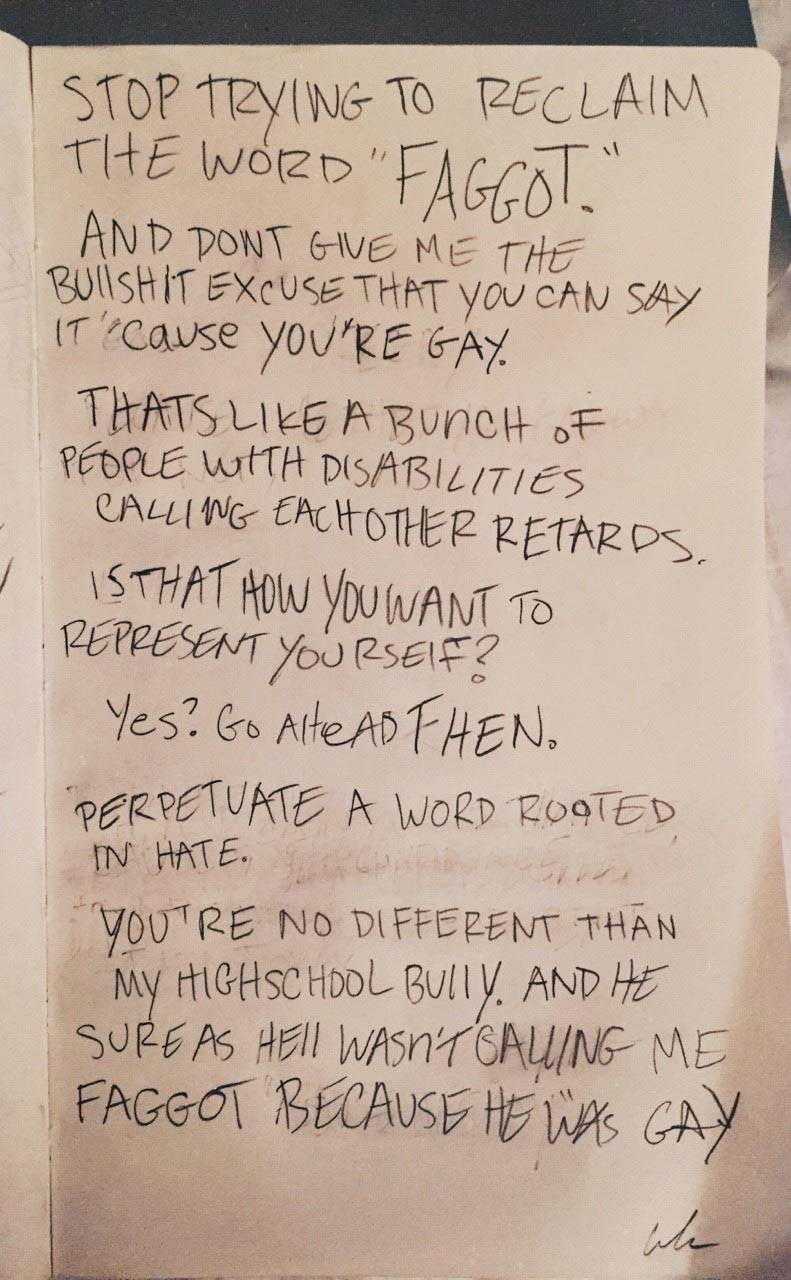 STOP TRYING TO RECLAIM
THE WORD "FAGGOT."
AND DONT GIVE ME THE
BUllSHIT EXCUSE THAT YOU CAN SAY
IT 'cause YOU'RE GAY.
THATS LIKE A BUnCH oF
PEOPLE WITH DISABILITIES
CALLING EACHOTHER RETARDS.
IS THAT HOW YOU WANT TO
REPRESENT YOURSElF?
Yes? Go AHeAD THEN.
PERPETUATE A WORD ROOTED
IN HATE.
YOU'RE NO DIFFERENT THAN
MY HIGHSCHOOL BUllY. AND HE
SURE AS HEll WASn'T CALLING ME
FAGGOT BECAUSE HE WAS GAY